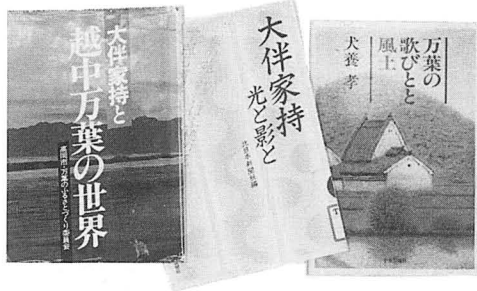 大伴家持と
越中万葉の世界
高岡市・万葉のふるさとづくり委員会
大伴家持
光と影と
北日本新聞社編
万葉の
歌びとと
風土
犬養 孝